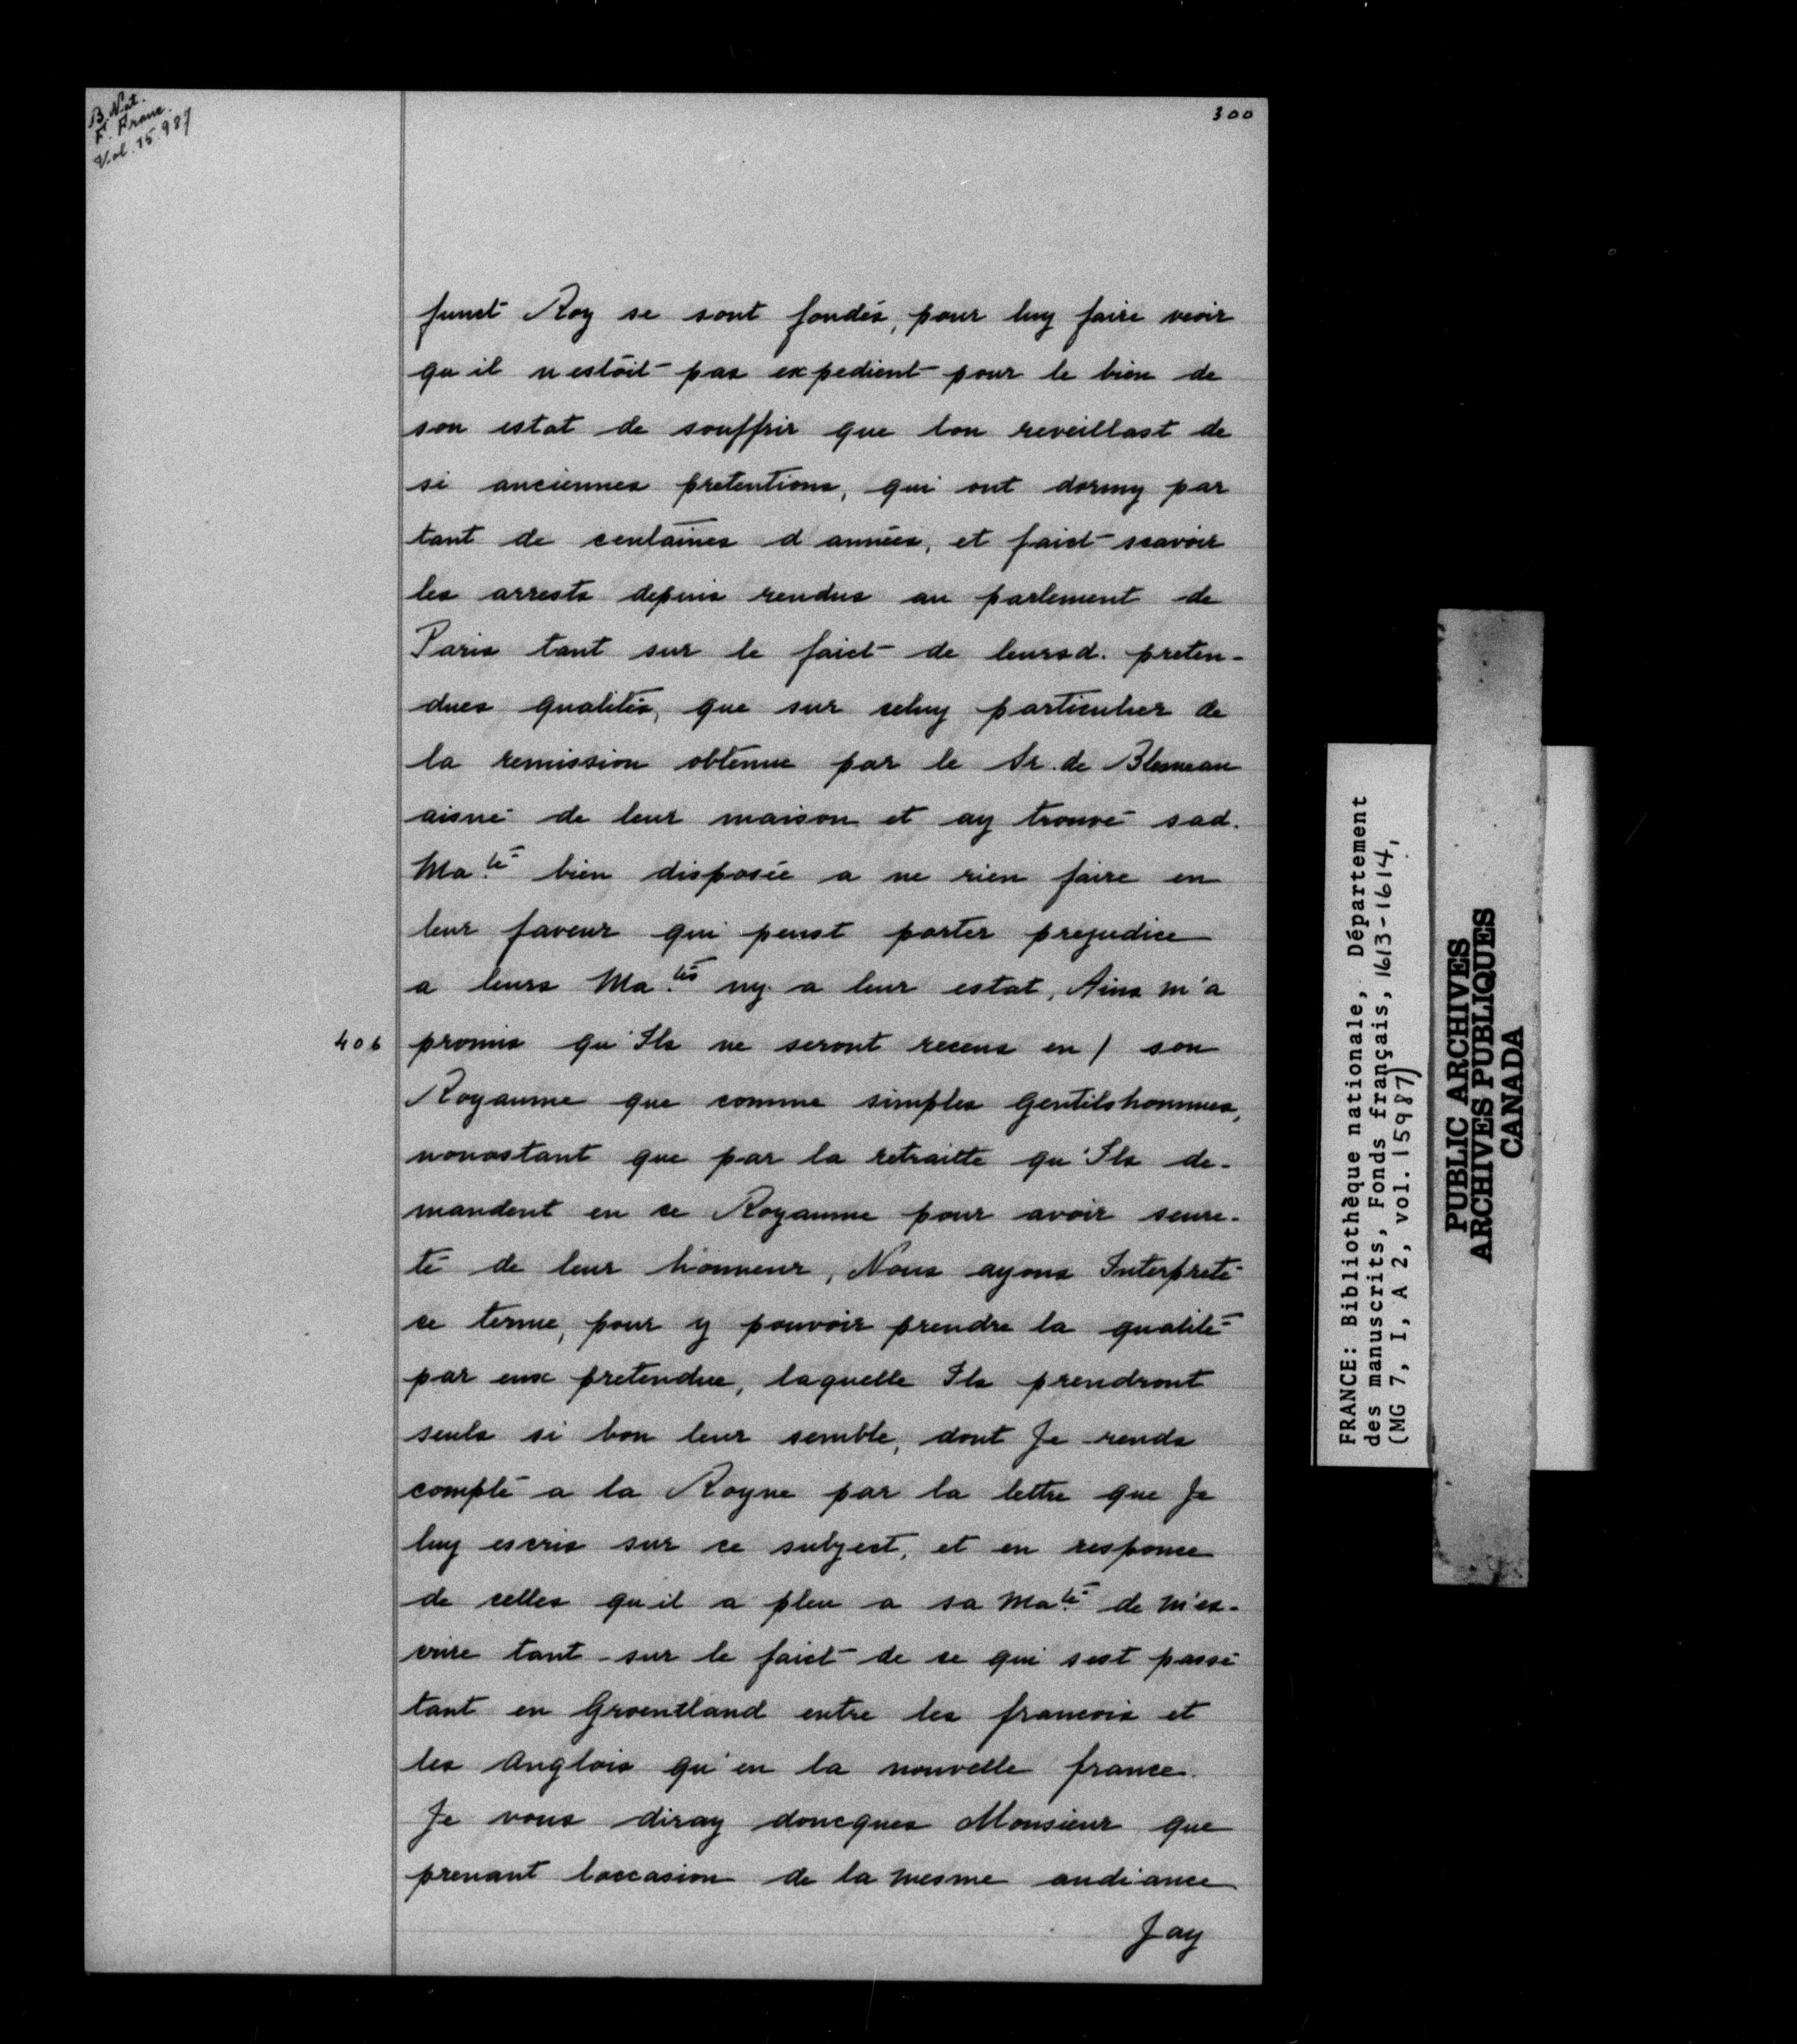 B. Nat.
F. Franc.
Vol. 15.987
300
funct Roy se sont fondés, pour luy faire veoir
qu il n estoit pas expedient pour le bien de
son estat de souffrir que lon reveillast de
si anciennes pretentions, qui ont dormy par
tant de centaines d années, et faict scavoir
les arrests depuis rendus au parlement de
Paris tant sur le faict de leursd. preten-
dues qualités, que sur celuy particulier de
la remission obtenue par le Sr. de Blesneau
aisné de leur maison et ay trouvé sad.
Ma.té bien disposée a ne rien faire en
leur faveur qui peust porter prejudice
a leurs Ma.tés ny a leur estat, Ains m'a
406 promis qu'Ils ne seront receus en / son
Royaume que comme simples gentilshommes,
nonostant que par la retraitte qu'Ils de-
mandent en ce Royaume pour avoir seure-
té de leur honneur, Nous ayons Interpreté
ce terme, pour y pouvoir prendre la qualité
par eux pretendue, laquelle Ils prendront
seuls si bon leur semble, dont Je rends
compte a la Royne par la lettre que Je
luy escris sur ce subject, et en responce
de celles qu il a pleu a sa Ma.té de m'es-
crire tant sur le faict de ce qui sest passé
tant en Groentland entre les francois et
les Anglois qu'en la nouvelle france.
Je vous diray doncques Monsieur que
prenant loccasion de la mesme audiance
Jay
FRANCE: Bibliothèque nationale, Département
des manuscrits, Fonds français, 1613-1614,
(MG 7, I, A 2, vol. 15987)
PUBLIC ARCHIVES
ARCHIVES PUBLIQUES
CANADA